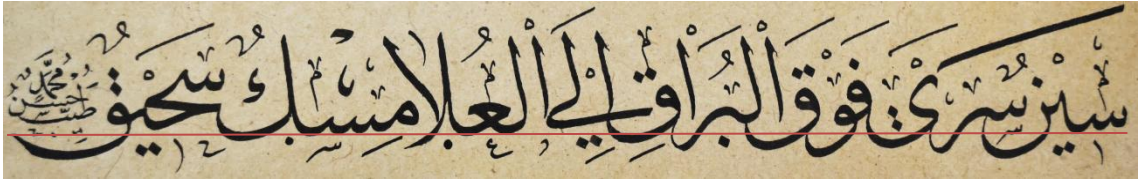 سين سَرَى فَوْقَ الْبُرَاقِ إِلَى الْعُلَا مِسْكٌ سَحِيْقٌ
محمد